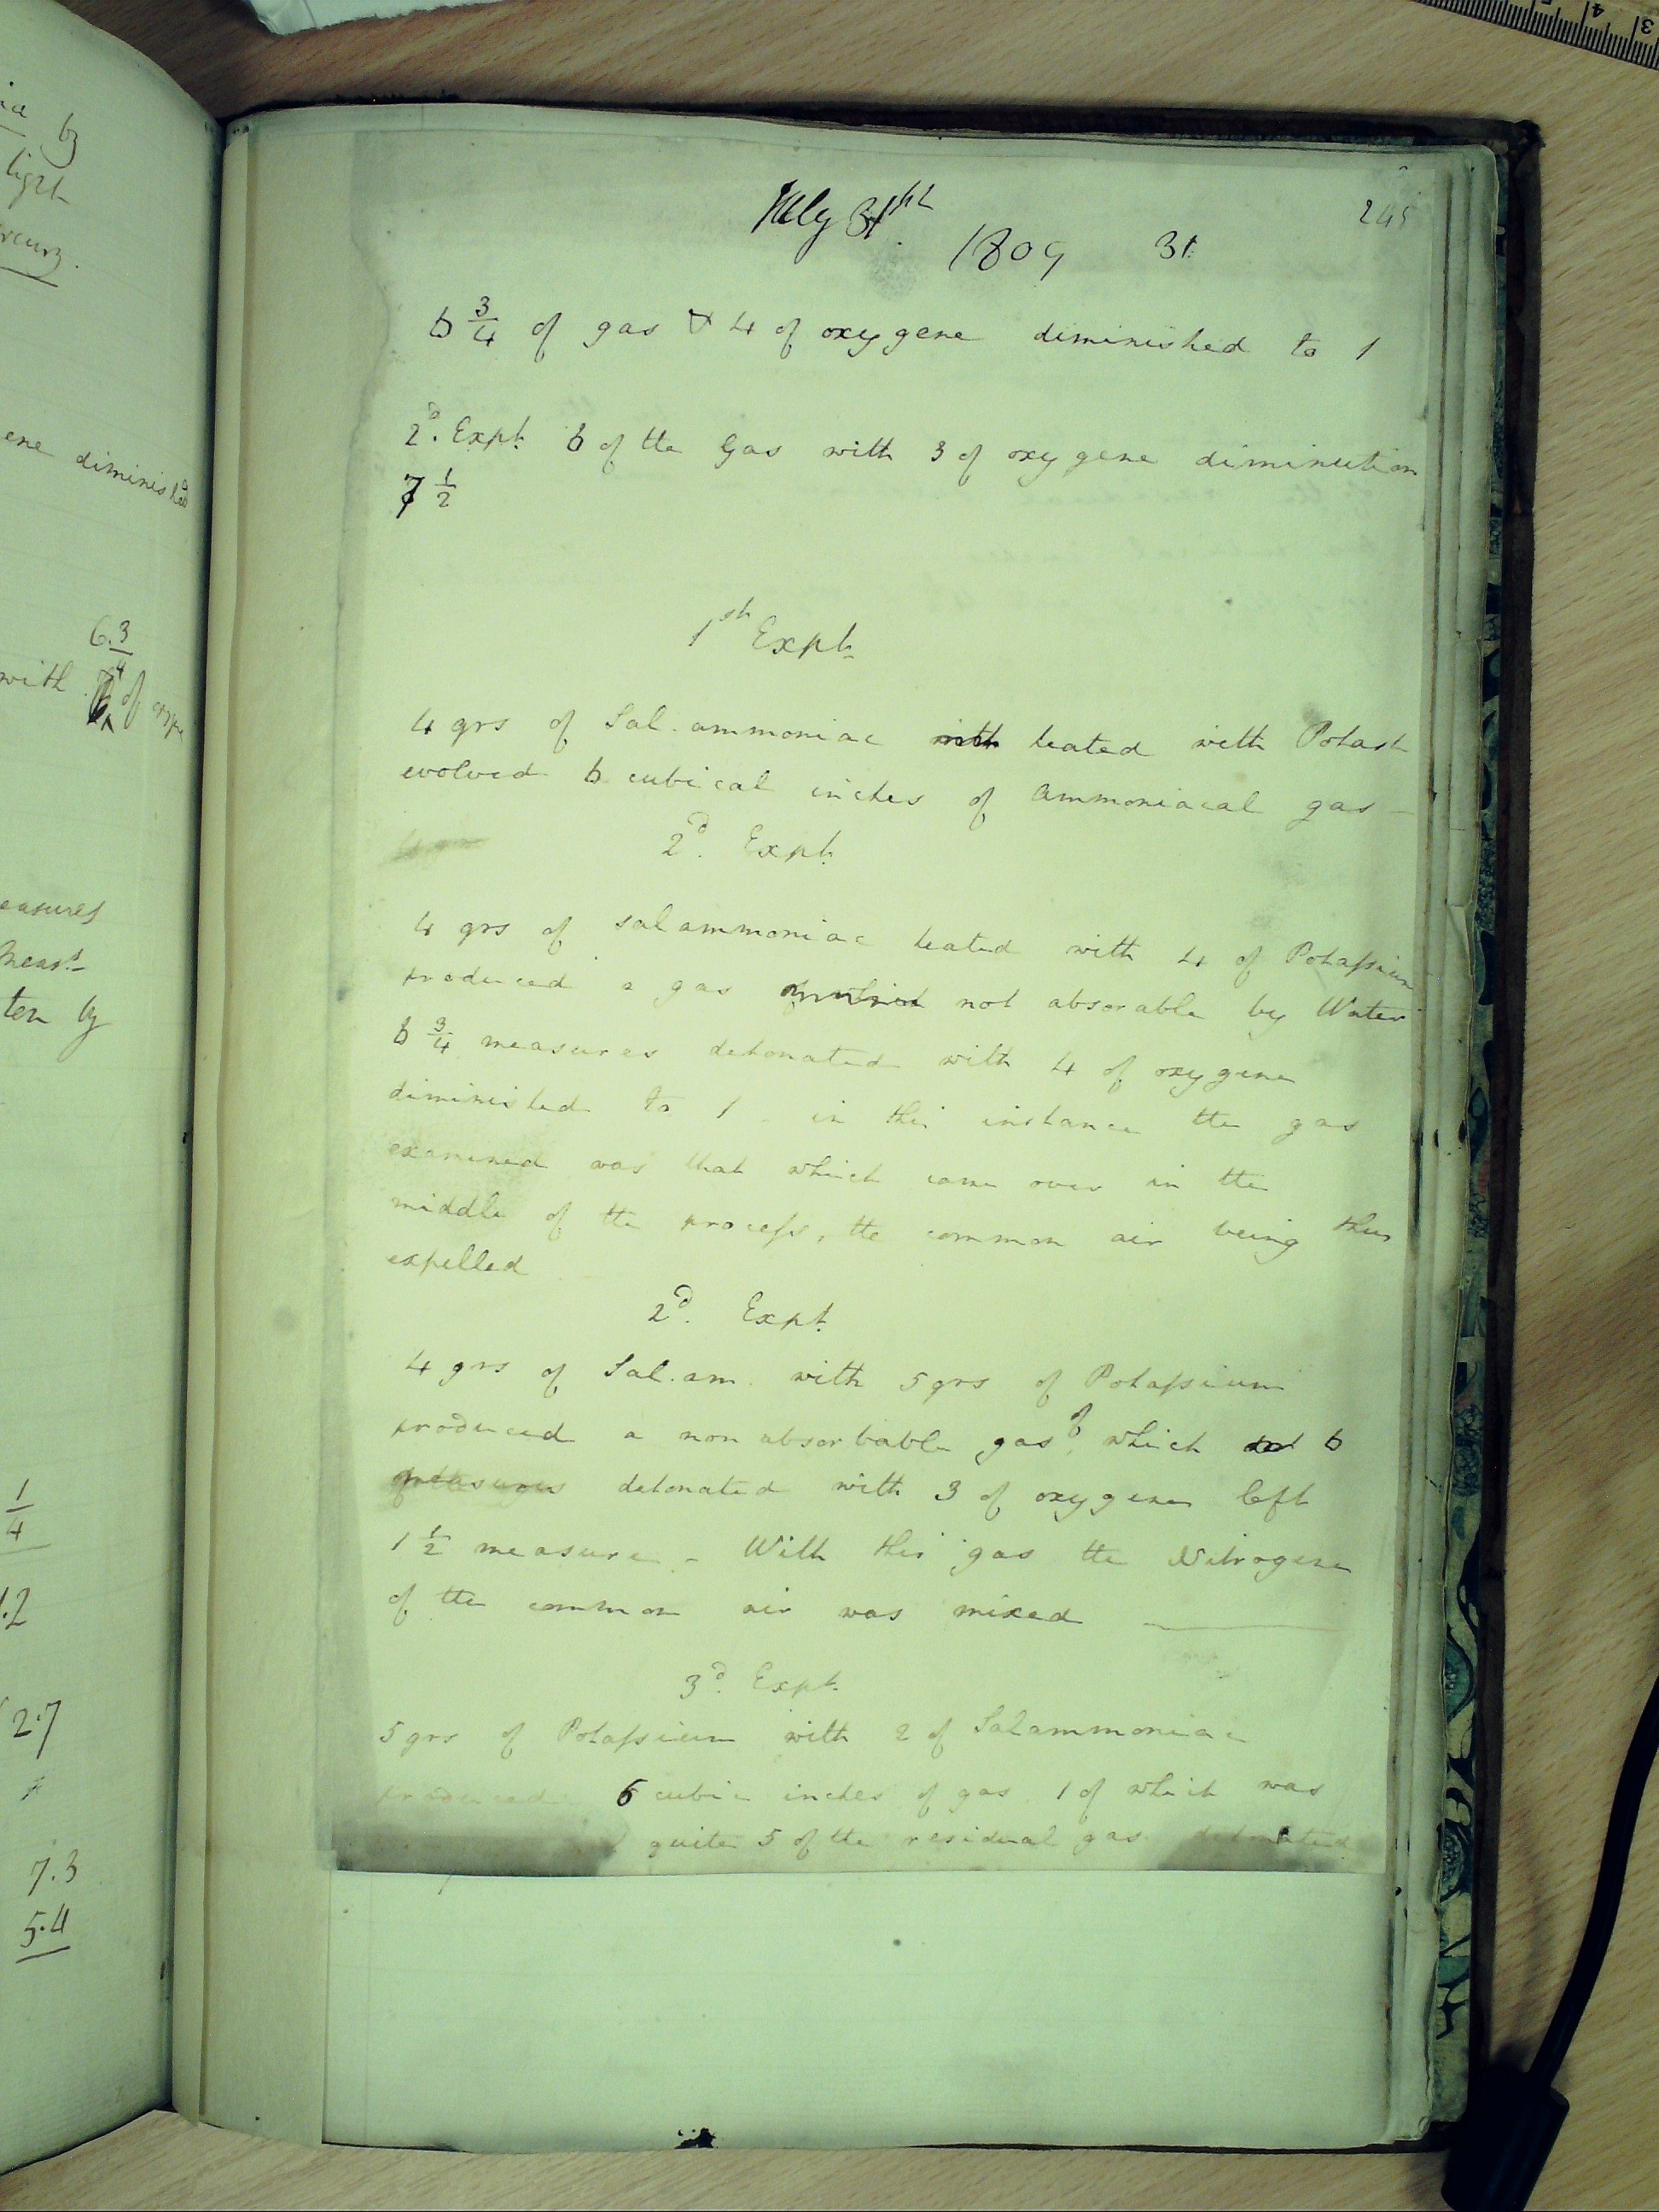 ice by
light
ene diminished
6.3
4
with of oxy
easures
Meas.
ten by
1
4
1.2
2.7
7.3
5.4
July 31st
1809 31
245
6 3/4 of gas & 4 of oxygene diminished to 1
2d. Expt. 6 of the Gas with 3 of oxygene diminution
7 1/2
1st Expt.
4 grs of Sal. ammoniac with heated with Potash
evolved 6 cubical inches of Ammoniacal gas -
2d. Expt.
4 grs of salammoniac heated with 4 of Potassium
produced a gas not absorable by Water
6 3/4 measures detonated with 4 of oxygene
diminished to 1 - in this instance the gas
examined was that which came over in the
middle of the process, the common air being thus
expelled
2d. Expt.
4 grs of Sal. am. with 5 grs of Potassium
produced a non absorbable gas, of which 6
measures detonated with 3 of oxygene left
1 1/2 measure - With this gas the Nitrogene
of the common air was mixed
3d. Expt.
5 grs of Potassium with 2 of Salammoniac
produced 6 cubic inches of gas 1 of which was
quite 5 of the residual gas detonated